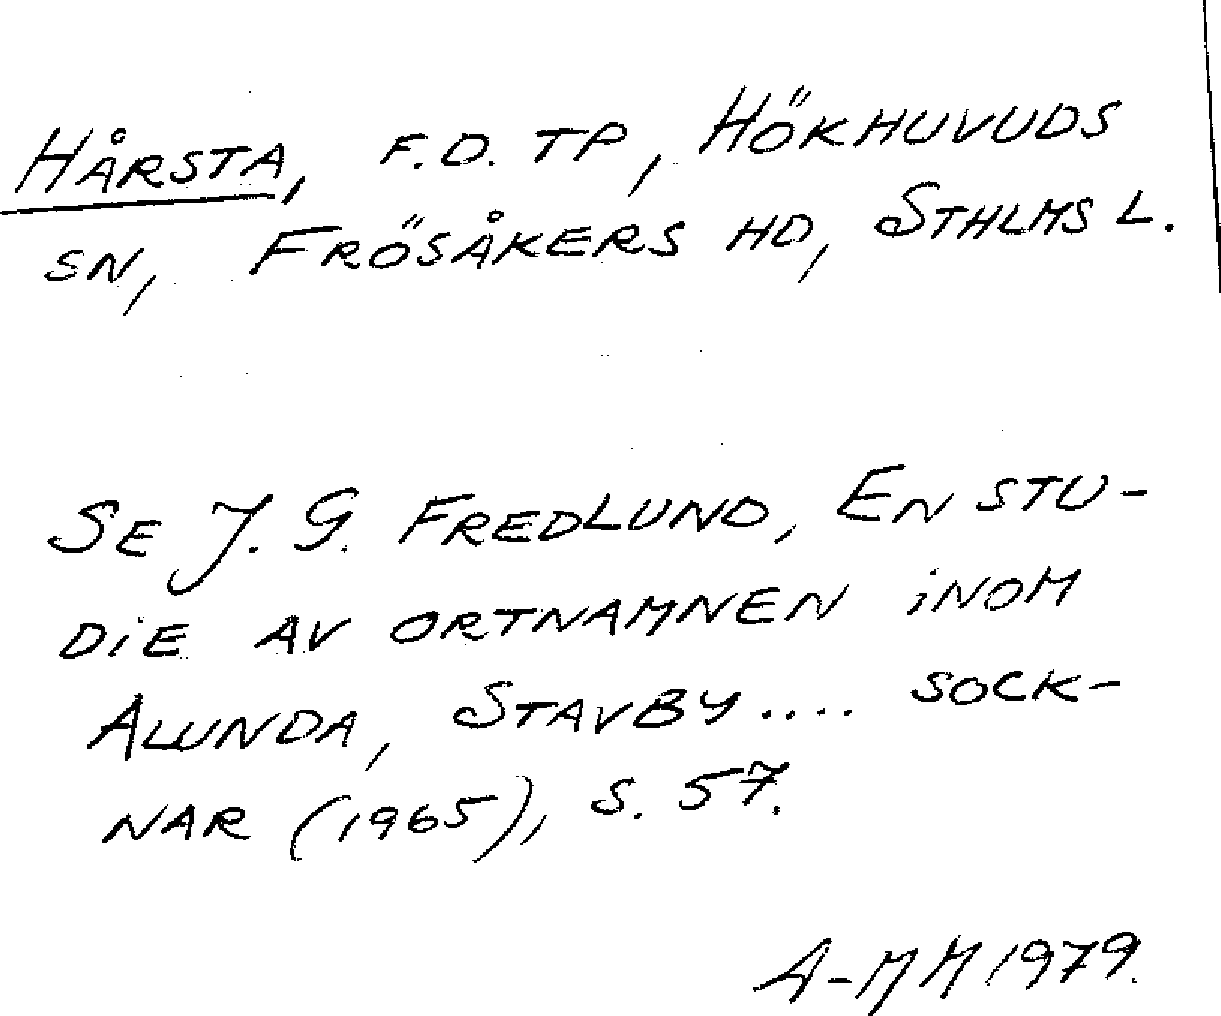 HÅRSTA, F.D. TP, HÖKHUVUDS
SN, FRÖSÅKERS HD, STHLMS L.
SE J. G. FREDLUND, EN STU-
DIE AV ORTNAMNEN INOM
ALUNDA, STAVBY.... SOCK-
NAR (1965), S. 57.
A-MM 1979.